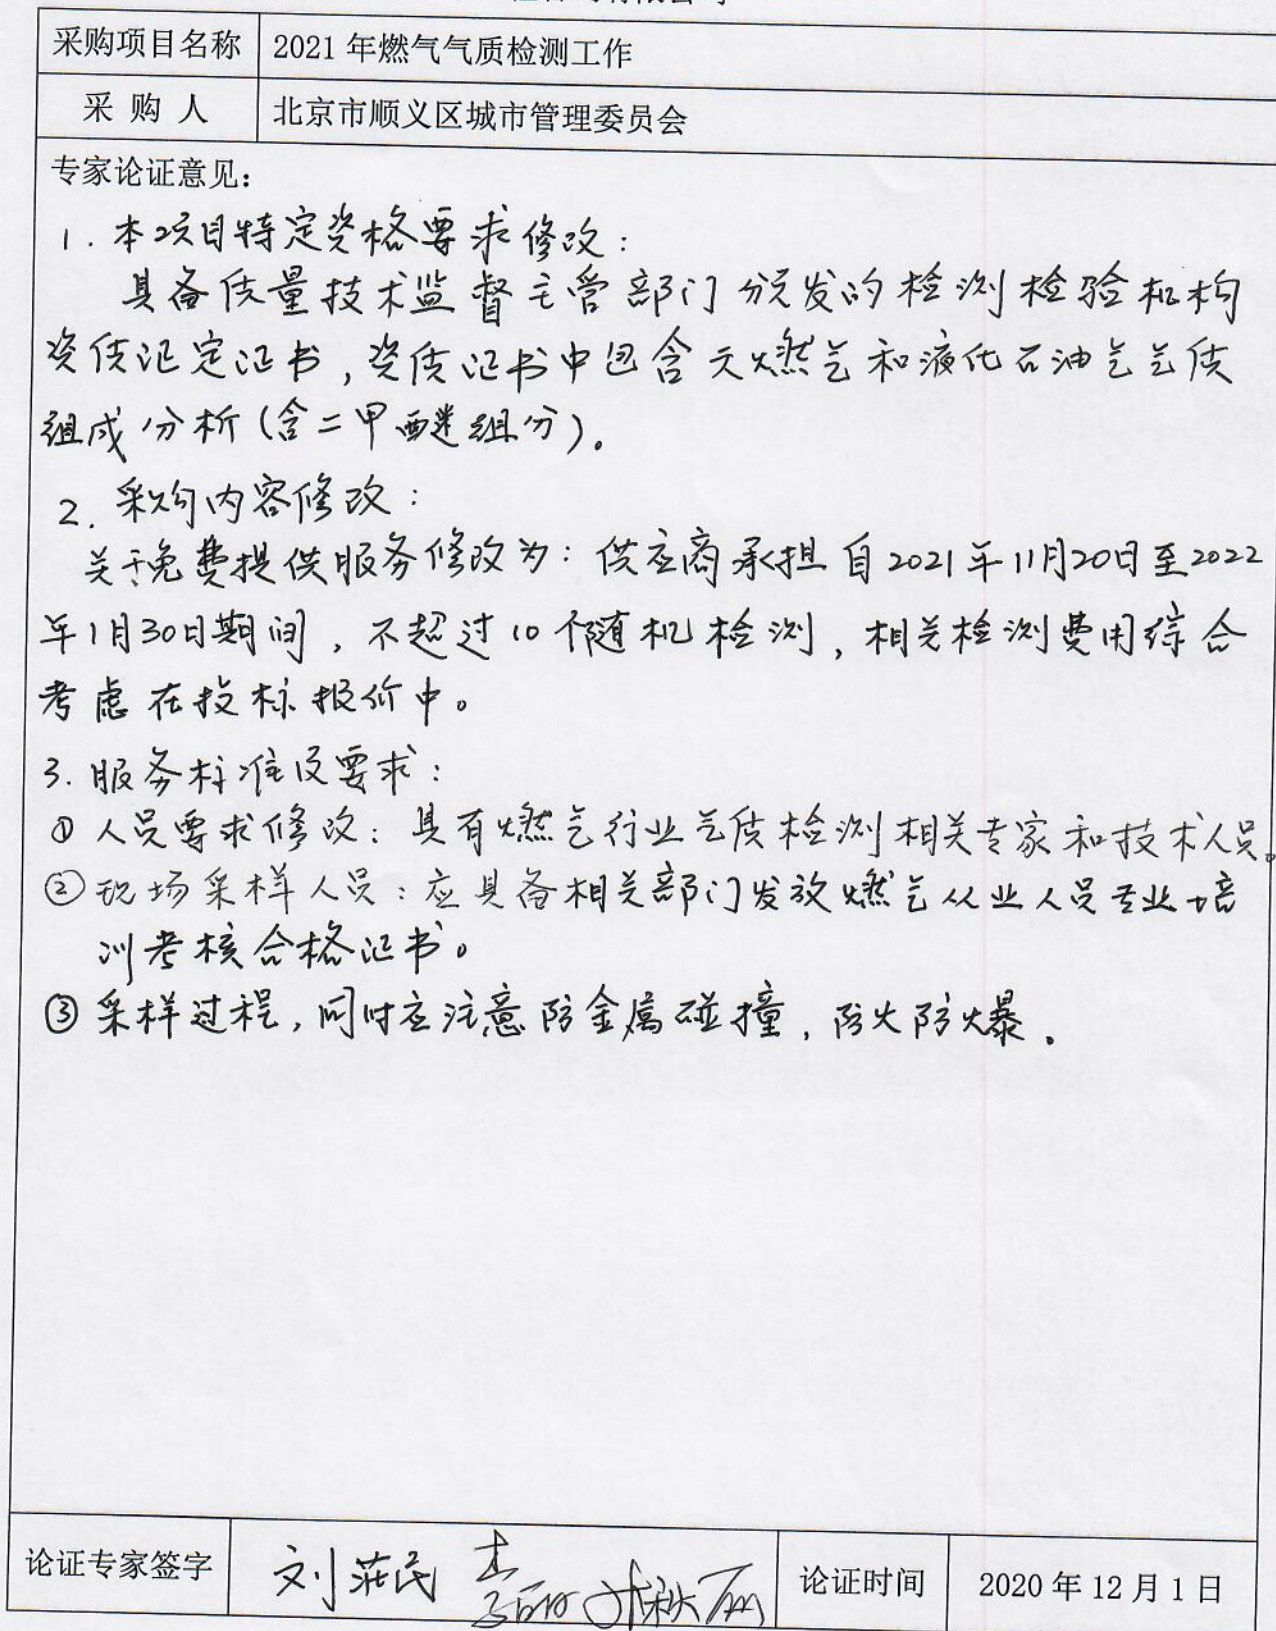 采购项目名称 2021 年燃气气质检测工作
采 购 人 北京市顺义区城市管理委员会
专家论证意见：
1. 本项目特定资格要求修改：
具备质量技术监督主管部门颁发的检测检验机构
资质认定证书，资质证书中包含天燃气和液化石油气气质
组成分析（含二甲醚组分）。
2. 采购内容修改：
关于免费提供服务修改为：供应商承担自2021年11月20日至2022
年1月30日期间，不超过10个随机检测，相关检测费用综合
考虑在投标报价中。
3. 服务标准及要求：
① 人员要求修改：具有燃气行业气质检测相关专家和技术人员。
② 现场采样人员：应具备相关部门发放燃气从业人员专业培
训考核合格证书。
③ 采样过程，同时应注意防金属碰撞，防火防爆。
论证专家签字 刘 民 论证时间 2020 年 12 月 1 日